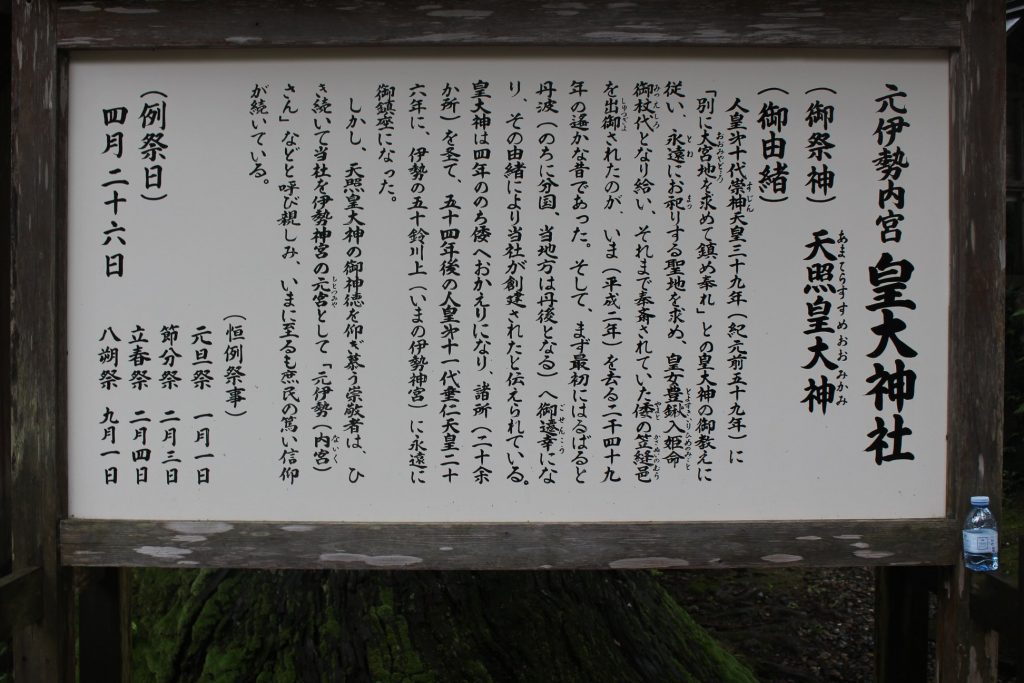 元伊勢内宮 皇大神社
(御祭神) 天照皇大神
あまてらすすめおおみかみ
(御由緒)
人皇才十代崇神天皇三十九年(紀元前五十九年)に
すじん
「別に大宮地を求めて鎮め奉れ」との皇大神の御教えに
おおみやどころ
従い、永遠にお祀りする聖地を求め、皇女豊鍬入姫命
とわ まつ とよすきいりひめのみこと
御杖代となり給い、それまで奉斎されていた倭の笠縫邑
みつえしろ やまと かさぬいのむら
を出御されたのが、いま(平成二年)を去る二千四十九
しゅつぎょ
年の遙かな昔であった。そして、まず最初にはるばると
丹波(のちに分国、当地方は丹後となる)へ御遠幸にな
ごせんこう
り、その由緒により当社が創建されたと伝えられている。
皇大神は四年ののち倭へおかえりになり、諸所(二十余
か所)を圣て、五十四年後の人皇才十一代垂仁天皇二十
六年に、伊勢の五十鈴川上(いまの伊勢神宮)に永遠に
御鎮座になった。
しかし、天照皇大神の御神徳を仰ぎ慕う崇敬者は、ひ
き続いて当社を伊勢神宮の元宮として「元伊勢(内宮)
もとつみや ないく
さん」などと呼び親しみ、いまに至るも庶民の篤い信仰
が続いている。
(恒例祭事)
元旦祭 一月一日
節分祭 二月三日
立春祭 二月四日
八朔祭 九月一日
(例祭日)
四月二十六日